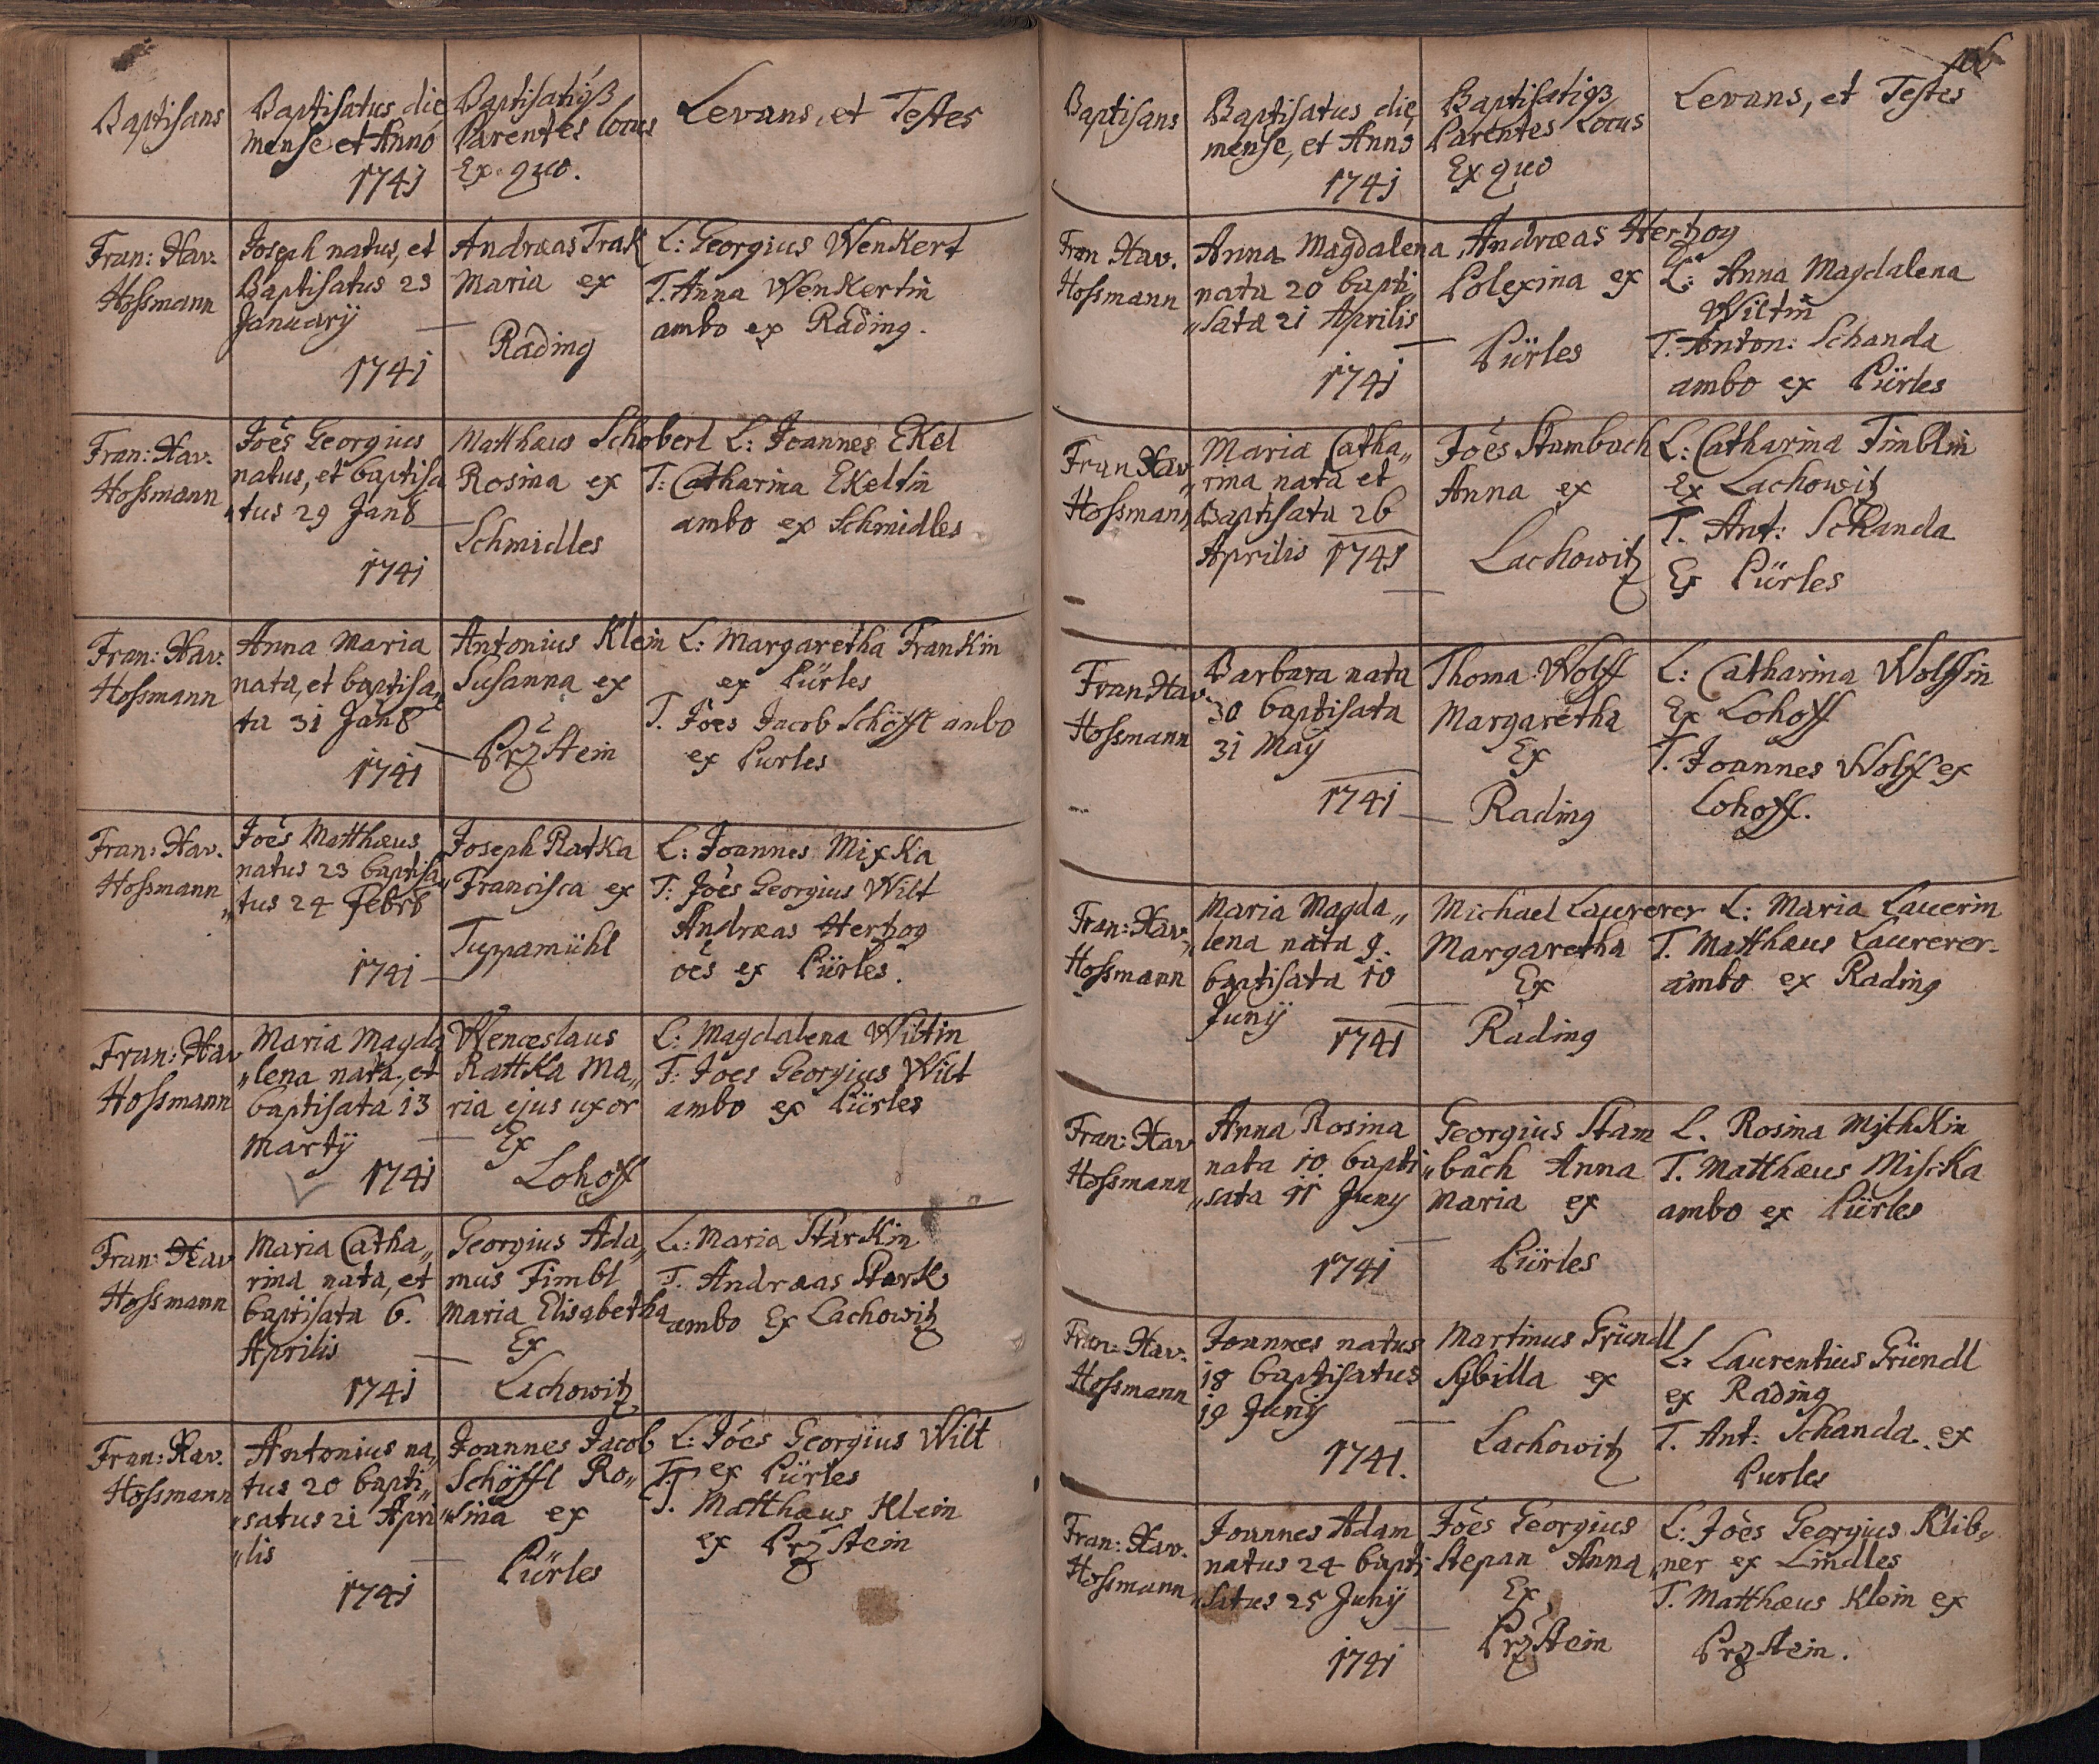 Baptisans
Baptisatus die
mense et Anno
1741
Baptisatiqß
Parentes locus
Ex quo.
Levans, et Testes
Fran: Xav.
Hossmann
Joseph natus, et
Baptisatus 23
Januarÿ
1741
Andræas Trak
Maria ex
Rading
L: Georgius WenKert
T. Anna WenKertin
ambo ex Rading.
Fran: Xav.
Hossmann
Joês Georgius
natus, et baptisa
„tus 29 Jan8
1741
Matthæus Schoberl
Rosina ex
Schmidles
L: Joannes EKel
T: Catharina EKeltin
ambo ex Schmidles
Fran: Xav.
Hossmann
Anna Maria
nata, et baptisa„
ta 31 Jan8
1741
Antonius Klein
Susanna ex
PrzStein
L: Margaretha FranKin
ex Pürles
T. Joês Jacob Schöffl ambo
ex Purles
Fran: Xav.
Hossmann
Joês Matthæus
natus 23 baptisa„
„tus 24 Febr8
1741
Joseph RatKa
Francisca ex
Tuppamühl
L: Joannes MixKa
T: Joês Georgius Wilt
Andræas Hertzog
oês ex Pürles.
Fran: Xav
Hossmann
Maria Magda
„lena nata, et
baptisata 13
Martÿ
1741
Wenceslaus
RattKa Ma„
ria ejus uxor
Ex
Lohoff
L: Magdalena Wiltin
T: Joes Georgius Wilt
ambo ex Pürles
Fran: Xav
Hossmann
Maria Catha„
rina nata, et
baptisata 6.
Aprilis
1741
Georgius Ada„
mus Fimbl
Maria Elisabetha
Ex
Lachowitz
L: Maria StarKin
T. Andræas Stark
ambo Ex Lachowitz
Fran: Xav.
Hossmann
Antonius na„
tus 20 bapti„
„satus 21 Apri
„lis
1741
Joannes Jacob
Schöffl Ro„
„sina ex
Pürles
L: Jóes Georgius Wilt
T. ex Pürles
T. Matthæus Klein
ex PrzStein
Baptisans
Baptisatus die
mense, et Anno
1741
Baptisatiqß
Parentes Locus
Ex quo
Levans, et Testes
Fran Xav.
Hossmann
Anna Magdalena
nata 20 bapti„
„sata 21 Aprilis
1741
Andræas Hertzog
Polexina ex
Pürles
L: Anna Magdalena
Wiltin
T. Anton: Schanda
ambo ex Pürles
Fran Xav
Hossmann
Maria Catha„
„rina nata et
Baptisata 26
Aprilis 1741
Joês Stumbach
Anna ex
Lachowitz
L: Catharina Fimblin
Ex Lachowitz
T. Ant: Schanda
Ex Pürles
Fran Xav.
Hossmann
Barbara nata
30 baptisata
31 Maÿ
1741
Thoma Wolff
Margaretha
Ex
Rading
L: Catharina Wolffin
Ex Lohoff
T. Joannes Wolff ex
Lohoff.
Fran: Xav.
Hossmann
Maria Magda„
lena nata 9.
baptisata 10
Junÿ
1741
Michael Laurerer
Margaretha
Ex
Rading
L: Maria Lauerin
T. Matthæus Laurerer
ambo ex Rading
Fran: Xav
Hossmann
Anna Rosina
nata 10 bapti
„sata 11 Juny
1741
Georgius Stam
„bach Anna
Maria ex
Pürles
L. Rosina MischKin
T. Matthæus MiscKa
ambo ex Pürles
Fran: Xav.
Hossmann
Joannes natus
18 baptisatus
19 Junÿ
1741.
Martinus Gründl
Sybilla ex
Lachowitz
L: Laurentius Gründl
ex Rading
T. Ant: Schanda ex
Purles
Fran: Xav.
Hossmann
Joannes Adam
natus 24 bapti
„satus 25 Junÿ
1741
Joês Georgius
Stepan Anna
Ex
PrzStein
L: Joês Georgius Klib„
„ner ex Lindles
T. Matthæus Klein ex
PrzStein.